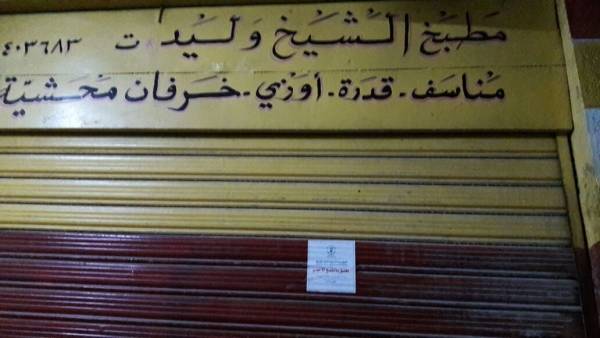 مطبخ الشيخ وليد ت ٤٠٣٦٨٣
مناسف - قدرة - أوزي - خرفان محشية